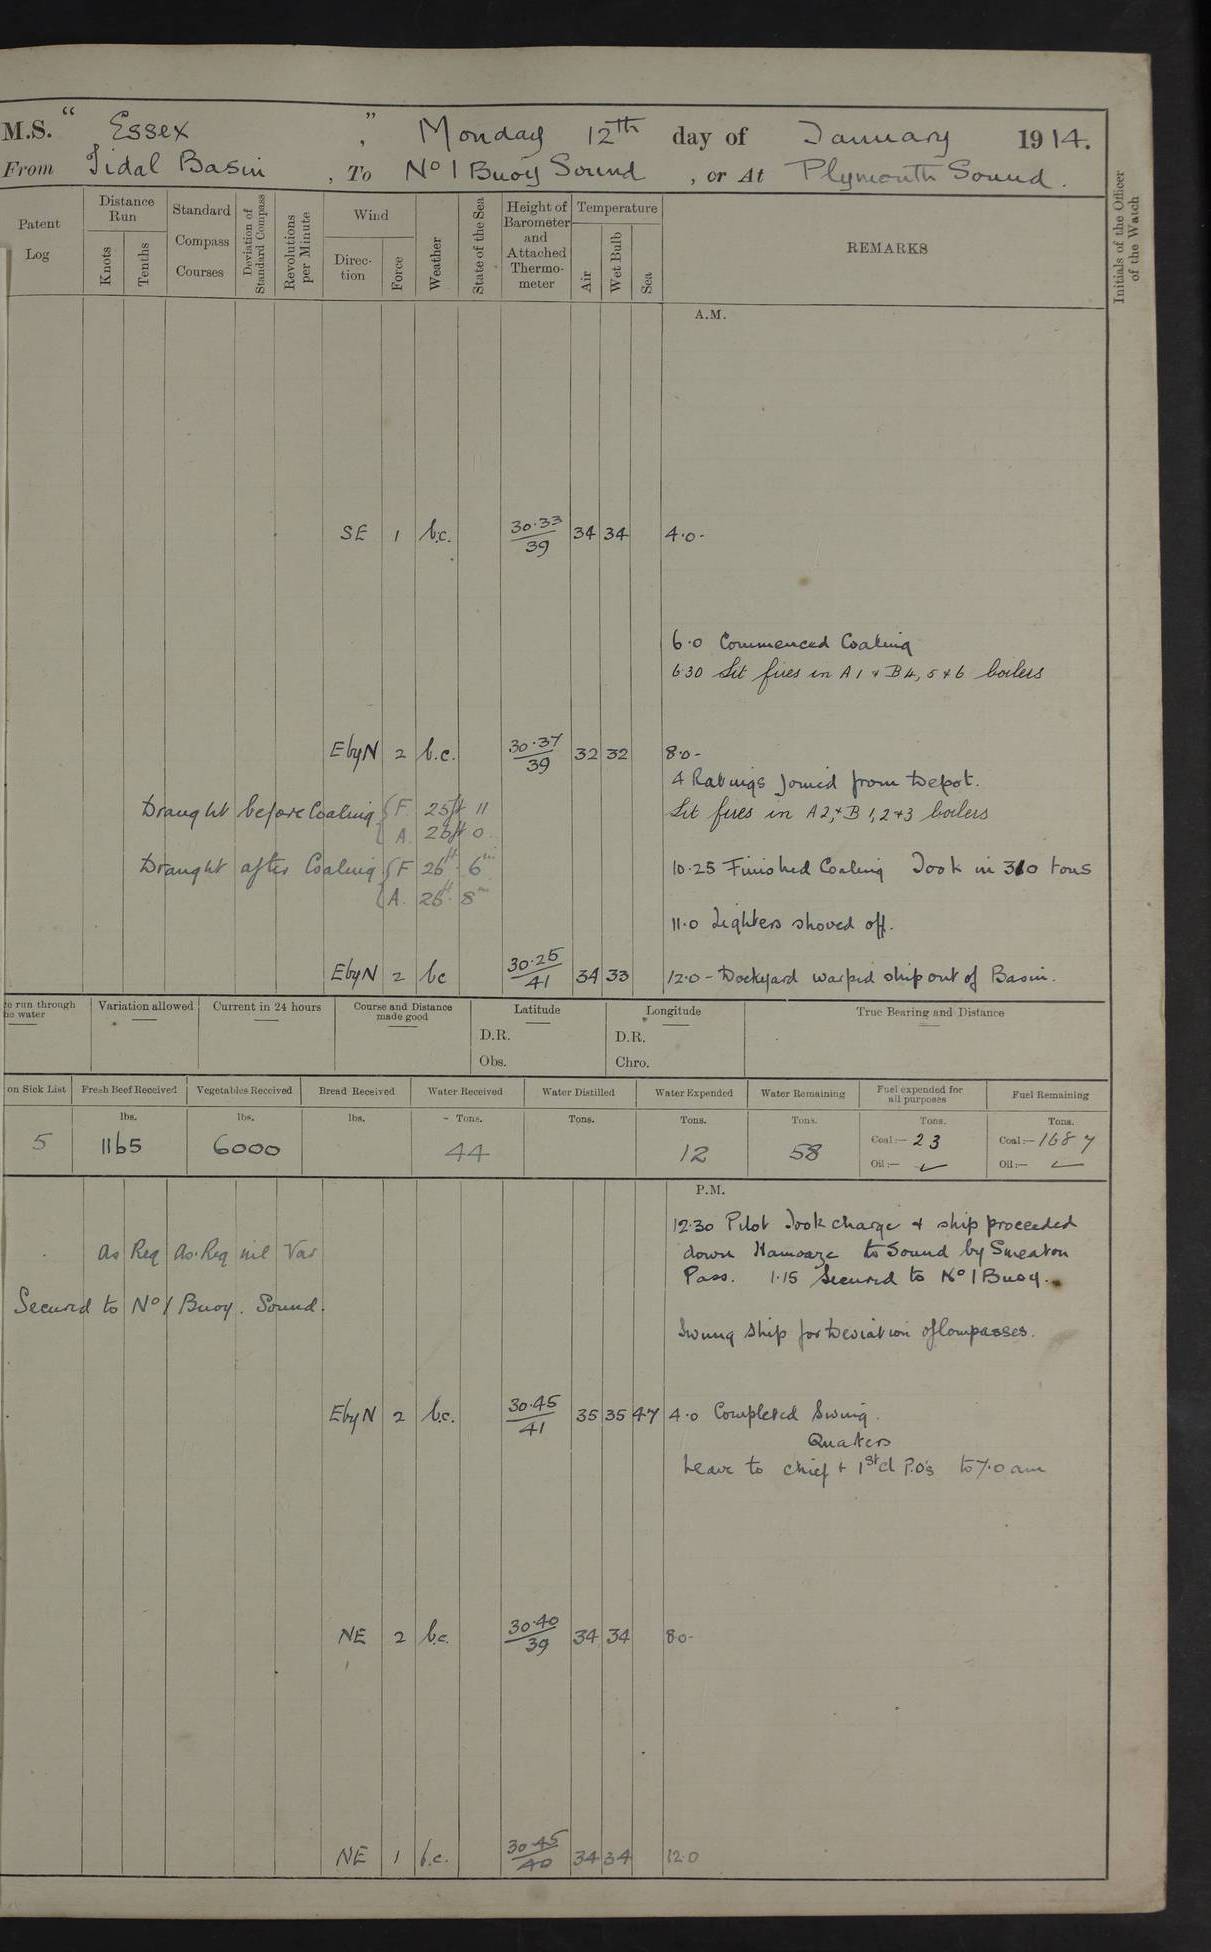 M.S. " Essex ", Monday 12th day of January 1914.
From Tidal Basin, To No 1 Buoy Sound, or At Plymouth Sound.
Patent Log
Distance Run
Knots
Tenths
Standard Compass Courses
Deviation of Standard Compass
Revolutions per Minute
Wind
Direction
Force
Weather
State of the Sea
Height of Barometer and Attached Thermometer
Temperature
Air
Wet Bulb
Sea
REMARKS
Initials of the Officer of the Watch
A.M.
SE 1 b.c. 30.33/39 34 34 4.0-
6.0 Commenced Coaling
6.30 Lit fires in A 1 + B 4, 5 + 6 boilers
E by N 2 b.c. 30.37/39 32 32 8.0-
4 Ratings joined from Depot.
Draught before Coaling { F. 25ft 11 Lit fires in A 2, + B 1, 2 + 3 boilers
A. 26ft 0
Draught after Coaling { F 26ft 6in 10.25 Finished Coaling Took in 310 tons
A. 26ft 8in
11.0 Lighters shoved off.
E by N 2 bc 30.25/41 34 33 12.0- Dockyard warped ship out of Basin.
run through water
Variation allowed
Current in 24 hours
Course and Distance made good
Latitude
D.R.
Obs.
Longitude
D.R.
Chro.
True Bearing and Distance
on Sick List Fresh Beef Received Vegetables Received Bread Received Water Received Water Distilled Water Expended Water Remaining Fuel expended for all purposes Fuel Remaining
lbs. lbs. lbs. Tons. Tons. Tons. Tons. Tons. Tons.
5 1165 6000 44 12 58 Coal:- 23 Coal:- 1687
Oil:- Oil:-
P.M.
12.30 Pilot Took charge + ship proceeded
as Req As. Req nil Var down Hamoaze to Sound by Smeaton
Pass. 1.15 Secured to No 1 Buoy.
Secured to No 1 Buoy. Sound.
Swung Ship for Deviation of Compasses.
E by N 2 b.c. 30.45/41 35 35 47 4.0 Completed Swing.
Quarters
Leave to Chief + 1st cl P.O's to 7.0 am
NE 2 b.c. 30.40/39 34 34 8.0-
NE 1 b.c. 30.45/40 34 34 12.0